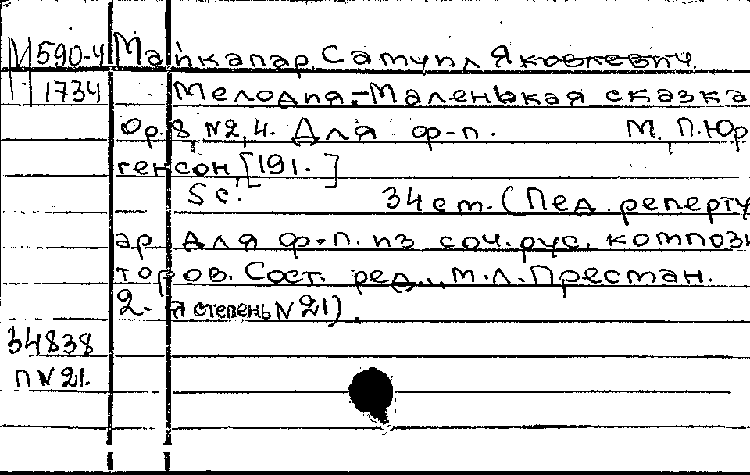 М590-4 Майкапар Самуил Яковлевич
1734 Мелодия.-Маленькая сказка
Ор.8, №2,4. Для ф-п. М. П.Юр
генсон,[191. ]
5с. 34 см. (Пед. реперту
ар для ф-п. из соч. рус. компози
торов. Сост. ред., М.Л. Пресман.
2. я степень №21).
34838
п №21.